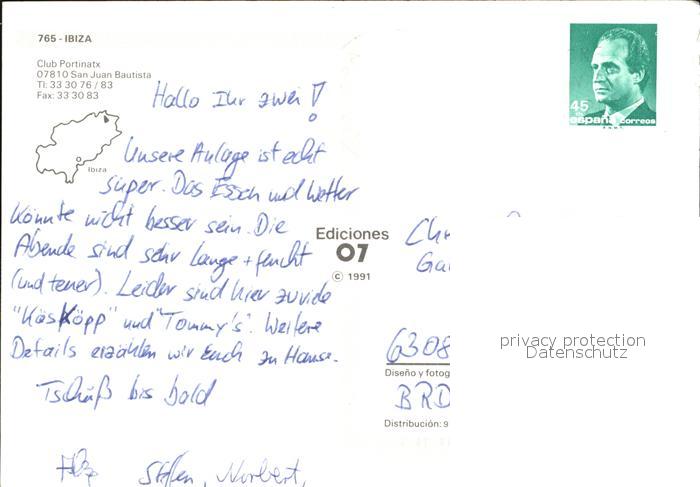 765 - IBIZA
Club Portinatx
07810 San Juan Bautista
Tl: 33 30 76 / 83
Fax: 33 30 83
Ibiza
Hallo Ihr zwei!
Unsere Anlage ist echt
super. Das Essen und Wetter
könnte nicht besser sein. Die
Abende sind sehr lange + feucht
(und teuer). Leider sind hier zuviele
"Käsköpp" und "Tommy's". Weitere
Details erzählen wir Euch zu Hause.
Tschüß bis bald
Steffen, Norbert,
45
españa correos
Ediciones
07
© 1991
Chr
Ga
6308
Diseño y fotog
BRD
Distribución: 9
privacy protection
Datenschutz